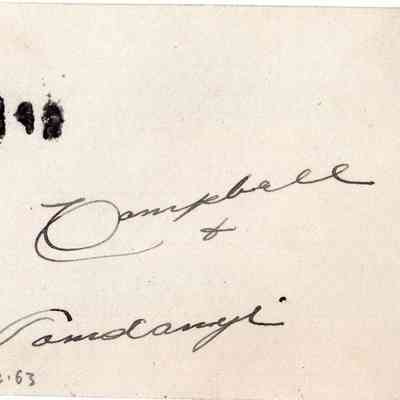 Campbell
+
Tomdangi
.63